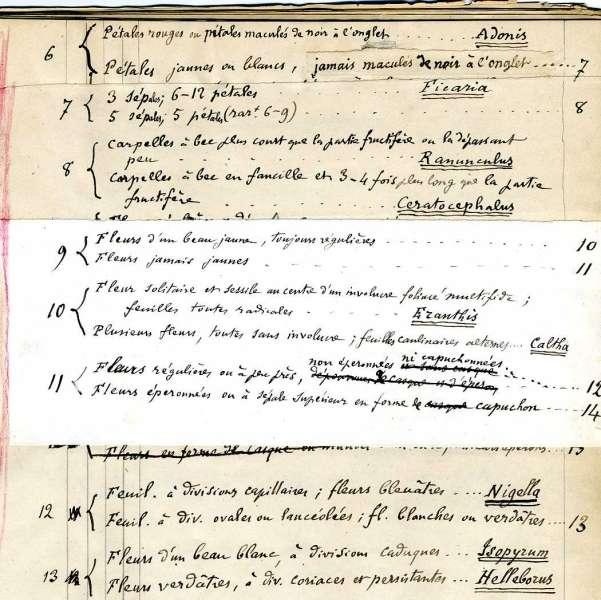 6 { Pétales rouges ou pétales maculés de noir à l'onglet ........ Adonis
Pétales jaunes ou blancs, jamais maculés de noir à l'onglet ...... 7
7 { 3 sépales; 6-12 pétales ........ Ficaria
5 sépales; 5 pétales (rart 6-9) ........ 8
8 { Carpelles à bec plus court que la partie fructifère ou la dépassant
peu ........ Ranunculus
Carpelles à bec en faucille et 3-4 fois plus long que la partie
fructifère ........ Ceratocephalus
9 { Fleurs d'un beau jaune, toujours régulières ........ 10
Fleurs jamais jaunes ........ 11
10 { Fleur solitaire et sessile au centre d'un involucre foliacé multifide;
feuilles toutes radicales ........ Eranthis
Plusieurs fleurs, toutes sans involucre; feuilles caulinaires alternes... Caltha
non éperonnées ni capuchonnées
11 { Fleurs régulières ou à peu près, ........ 12
Fleurs éperonnées ou à sépale supérieur en forme de casque capuchon .... 14
Fleurs en forme de casque ou munies
12 { Feuil. à divisions capillaires; fleurs bleuâtres .... Nigella
Feuil. à div. ovales ou lancéolées; fl. blanches ou verdâtres .... 13
13 { Fleurs d'un beau blanc, à divisions caduques ... Isopyrum
Fleurs verdâtres, à div. coriaces et persistantes ... Helleborus